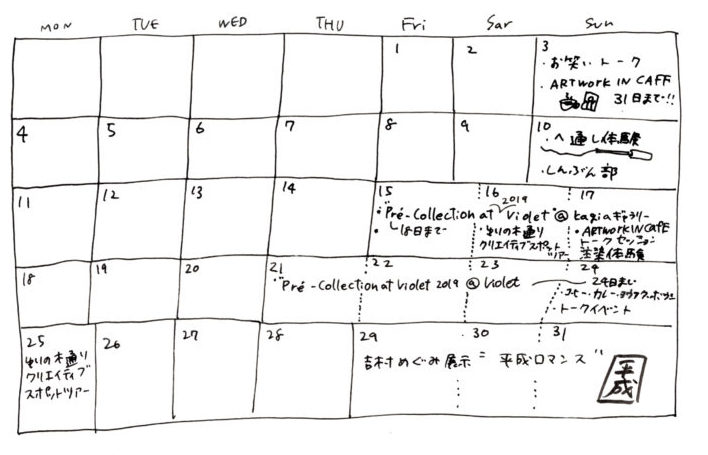 MON TUE WED THU Fri Sar Sun
1 2 3
・お笑いトーク
・ARTWORK IN CAFF
31日まで!!
4 5 6 7 8 9 10
・へ通し体験
・しんぶん部
11 12 13 14 15 16 17
・"Pré-Collection at Violet" @ kagiaギャラリー
2019
└18日まで
・ゆりの木通り
クリエイティブスポット
ツアー
・ARTWORK IN CAFE
トークセッション
注染体験
18 19 20 21 22 23 24
"Pré-Collection at Violet 2019 @ Violet
24日まで
・トークイベント
25 26 27 28 29 30 31
ゆりの木通り
クリエイティブ
スポットツアー
吉村めぐみ展示 "平成ロマンス"
平成